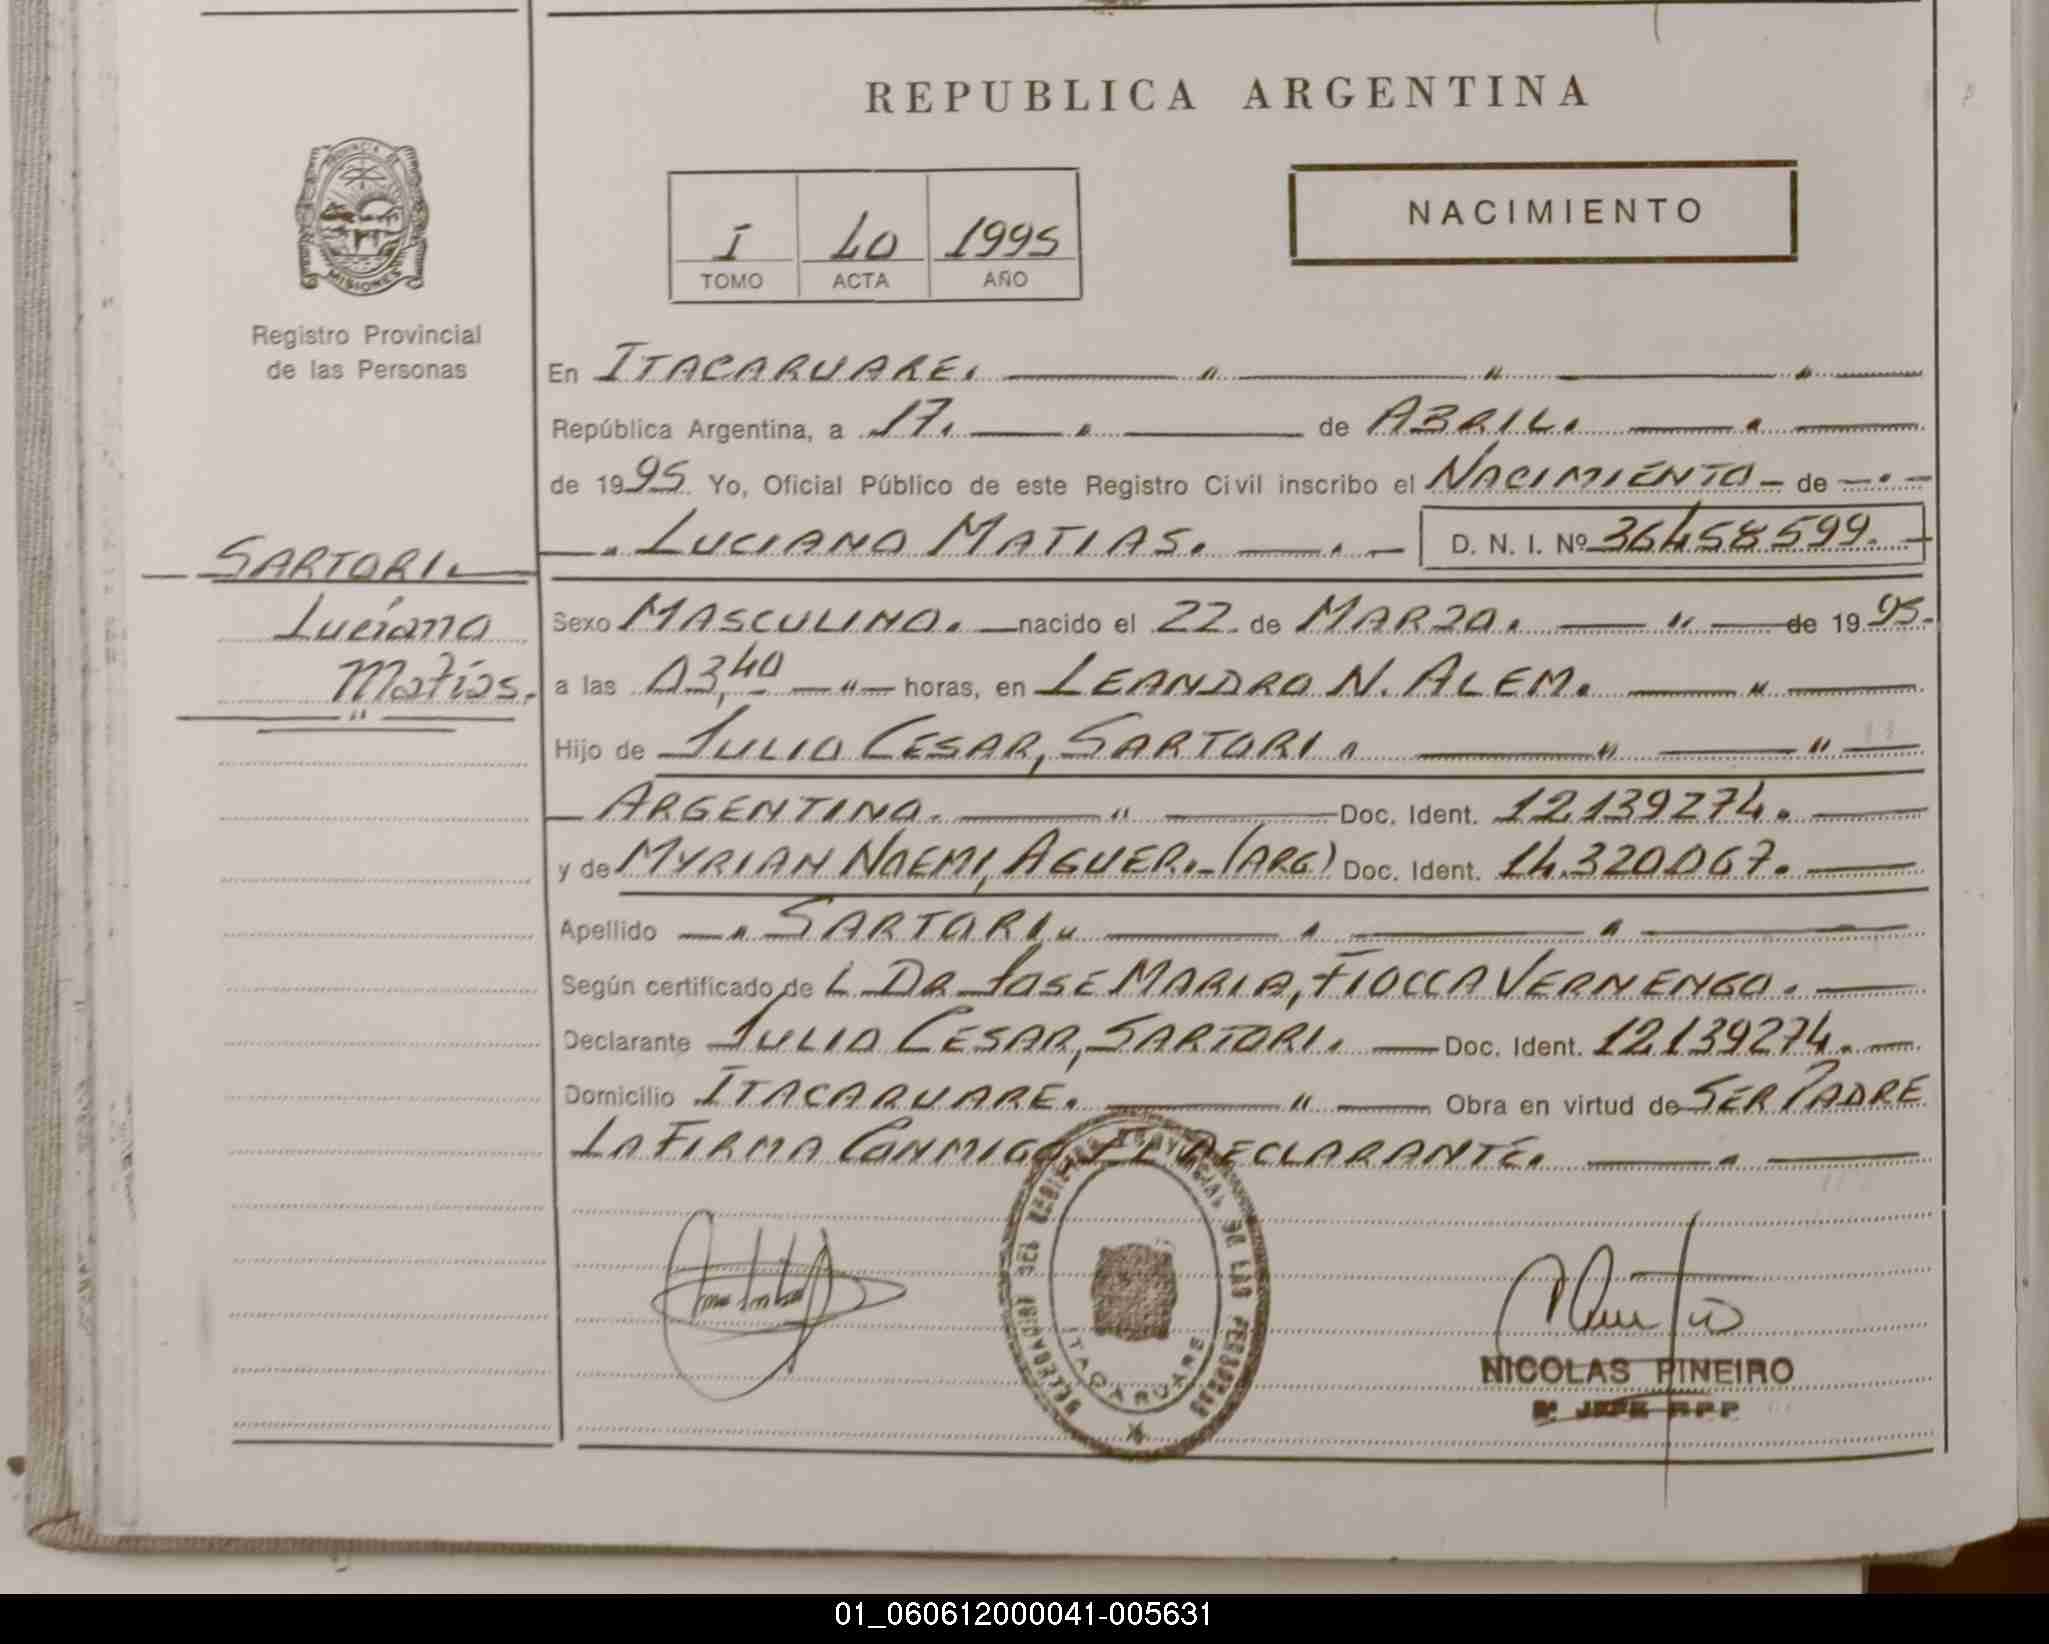 REPUBLICA ARGENTINA
PROVINCIA DE MISIONES
Registro Provincial
de las Personas
I 40 1995
TOMO ACTA AÑO
NACIMIENTO
En ITACARUARE.
República Argentina, a 17. de ABRIL.
de 1995 Yo, Oficial Público de este Registro Civil inscribo el NACIMIENTO de
LUCIANO MATIAS. D. N. I. Nº 36458599.
SARTORI
Luciano
Matias.
Sexo MASCULINO. nacido el 22 de MARZO. de 1995.
a las 03,40 horas, en LEANDRO N. ALEM.
Hijo de JULIO CESAR, SARTORI
ARGENTINO. Doc. Ident. 12.139274.
y de MYRIAN NOEMI, AGUER.-(ARG) Doc. Ident. 14.320067.
Apellido SARTORI
Según certificado de L DR JOSE MARIA, FIOCCA VERNENGO.
Declarante JULIO CESAR, SARTORI. Doc. Ident. 12.139274.
Domicilio ITACARUARE. Obra en virtud de SER PADRE
LA FIRMA CONMIGO EL DECLARANTE.
REGISTRO PROVINCIAL DE LAS PERSONAS
ITACARUARE
NICOLAS PINEIRO
JEFE RPP
01_060612000041-005631